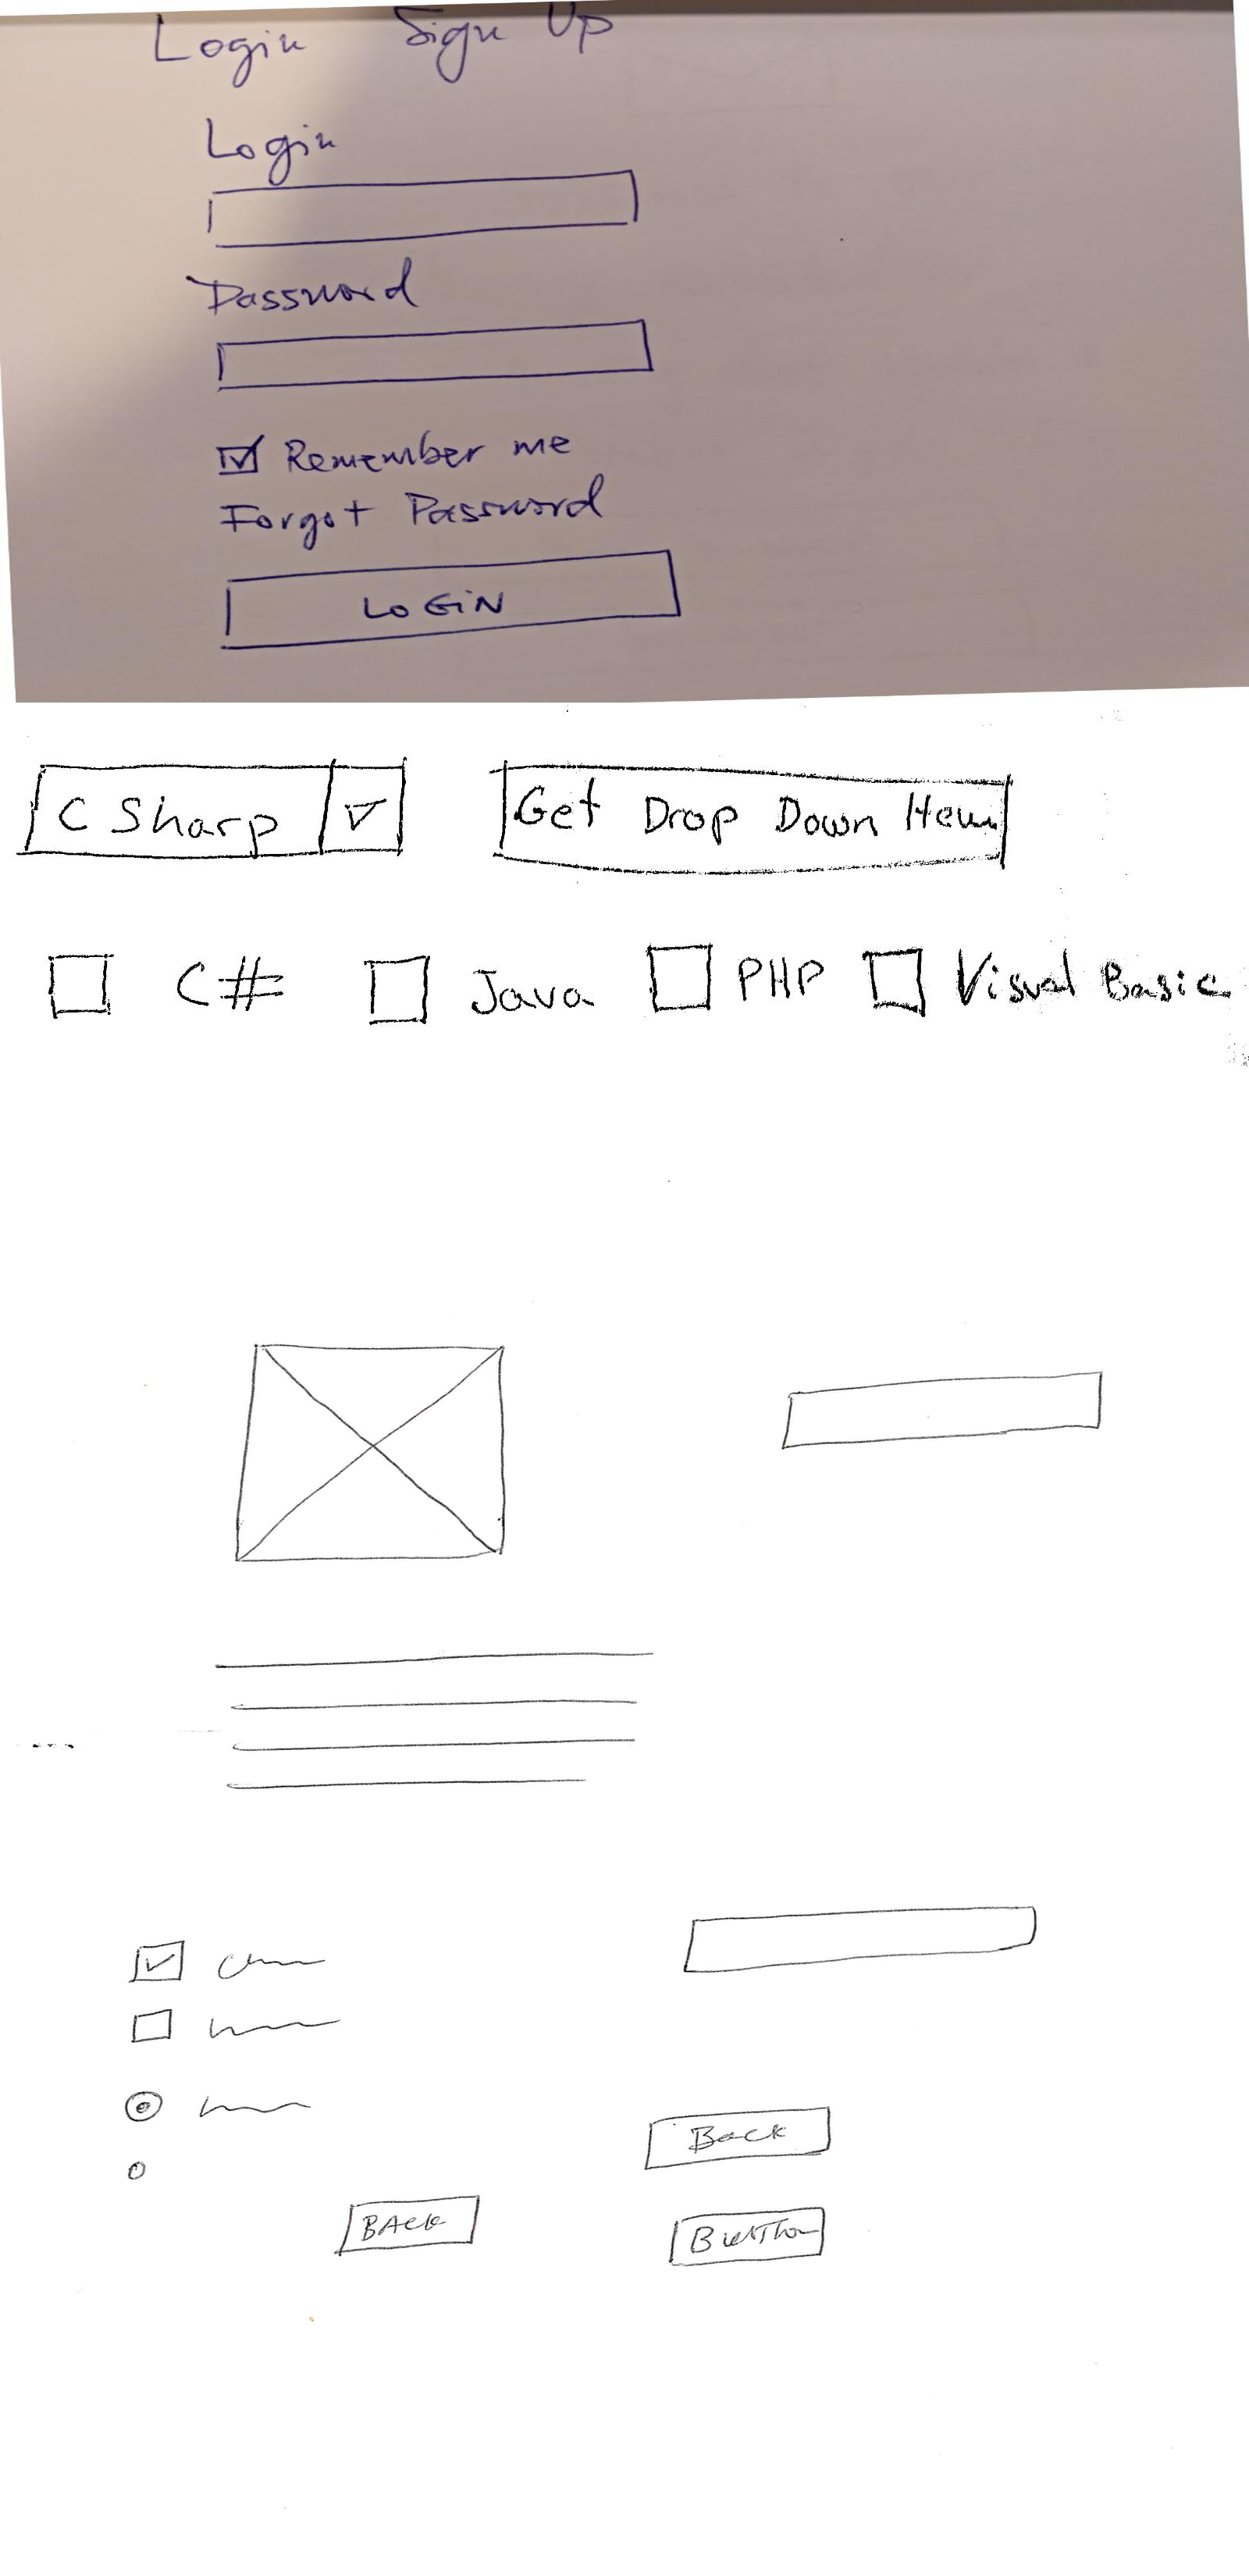 Login Sign Up
Login
Password
Remember me
Forgot Password
LOGIN
C Sharp
Get Drop Down Item
C# Java PHP Visual Basic
Back
BACK
Button